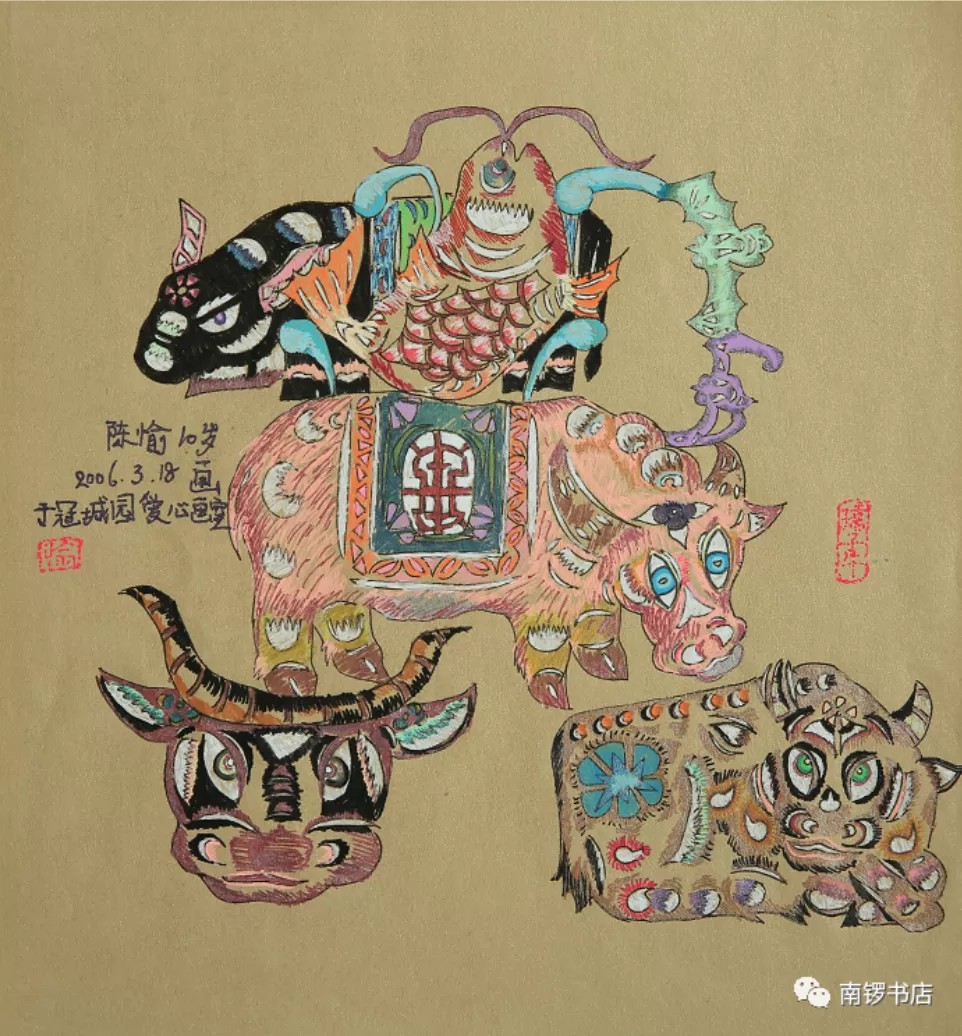 陈愉 10岁
2006.3.18 画
于冠城园爱心画室
南锣书店